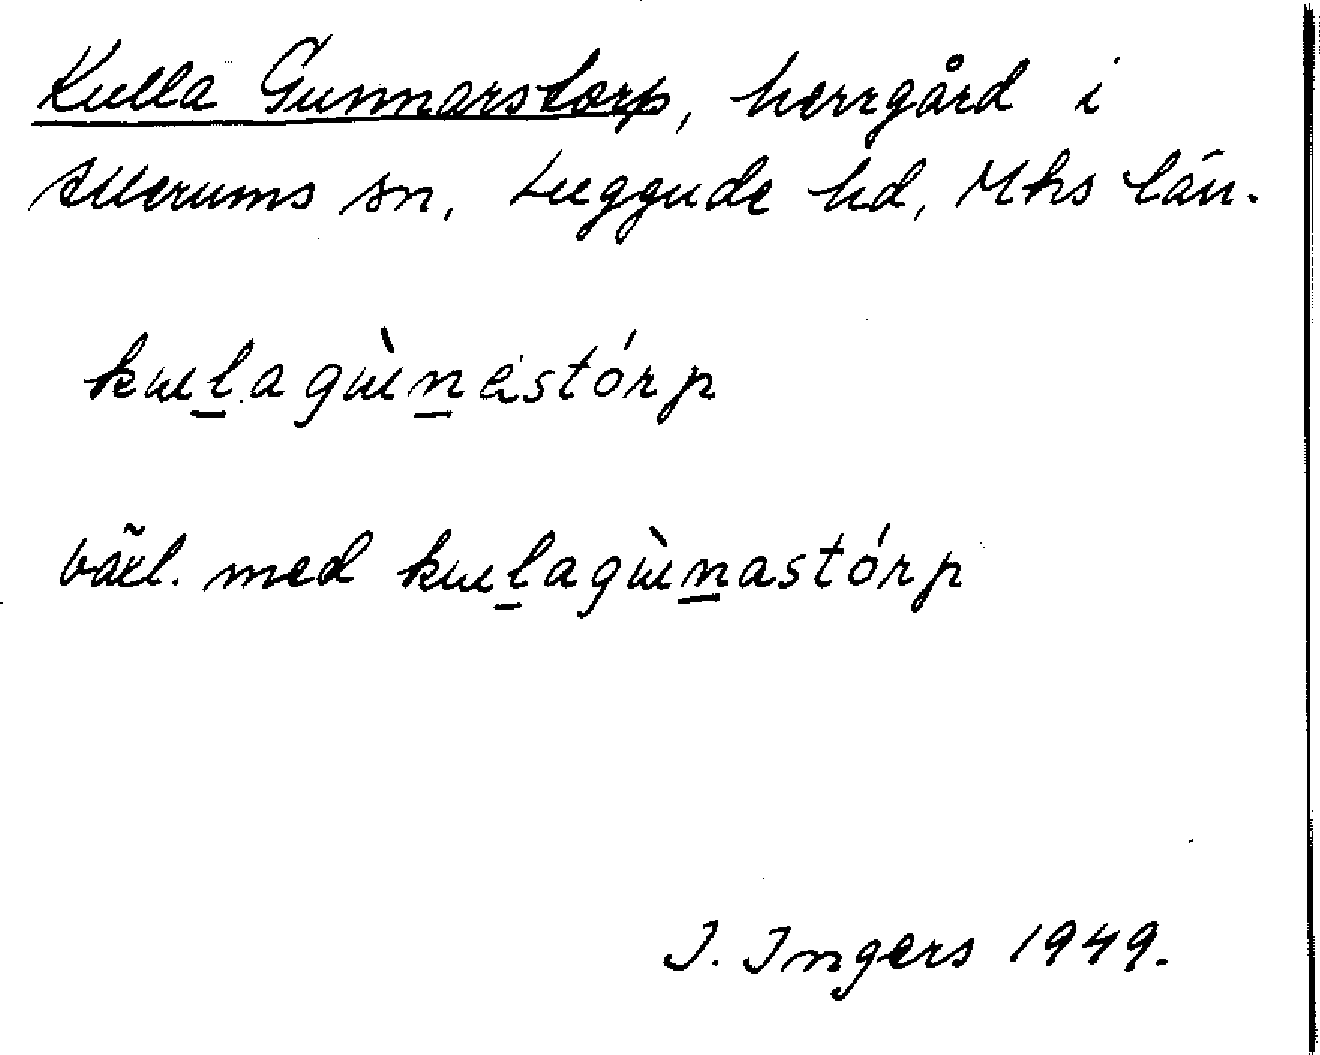 Kulla Gunnarstorp, herrgård i
Allerums sn, Luggude hd, Mhs län.
kɯl̲agɯ̀n̲əstórp
växl. med kɯl̲agɯ̀n̲astórp
I. Ingers 1949.